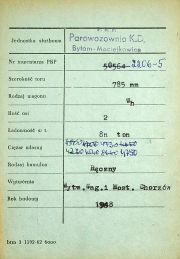 P.K.P.
Jednostka służbowa Parowozownia K.D.
Bytom-Maciejkowice
Nr inwentarza PKP 50564 2206-5
Szerokość toru 785 mm
Rodzaj wagonu Wh
Ilość osi 2
Ładowność w t 8n ton
Ciężar własny
4220 4240 4440 4750
Rodzaj hamulca Ręczny
Wytwórnia Wytw.Wag.i Most. Chorzów
Rok budowy